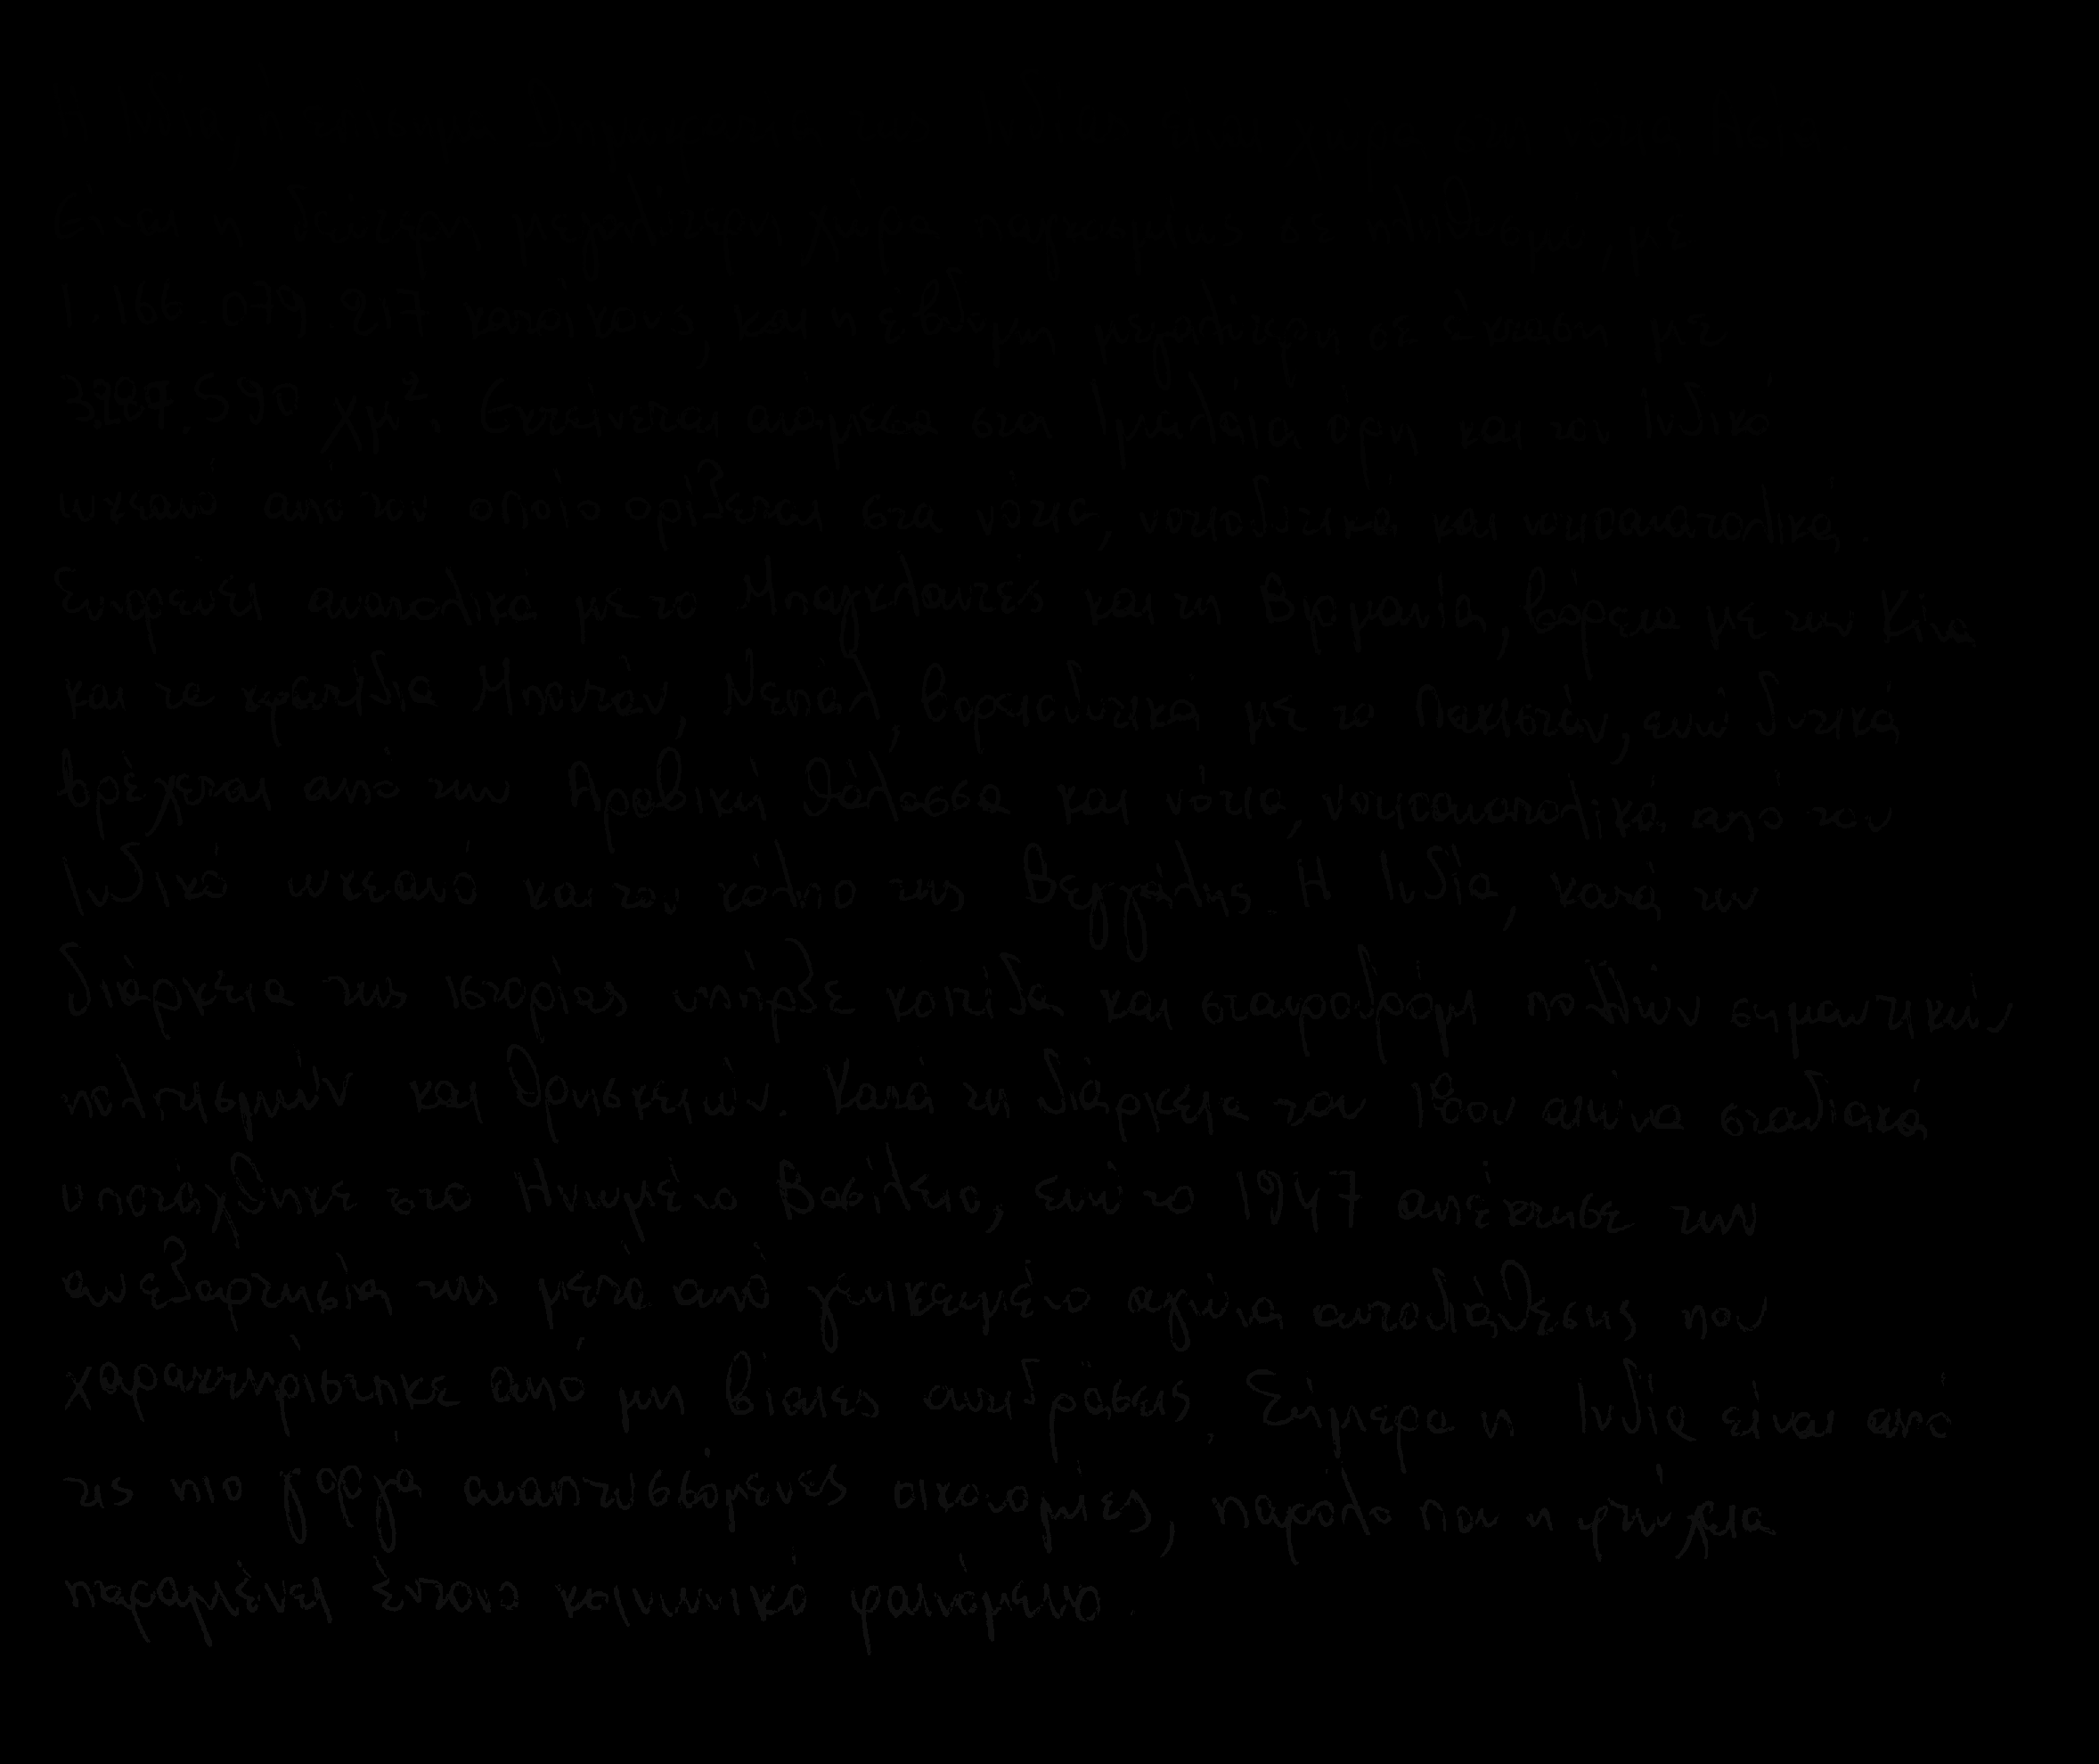 Είναι η δεύτερη μεγαλύτερη χώρα παγκοσμίως σε πληθυσμό, με
1.166.079.217 κατοίκους, και η έβδομη μεγαλύτερη σε έκταση με
3.287.590 χμ². Εκτείνεται ανάμεσα στα Ιμαλάια όρη και τον Ινδικό
ωκεανό από τον οποίο ορίζεται στα νότια, νοτιοδυτικά και νοτιοανατολικά.
Συνορεύει ανατολικά με το Μπαγκλαντές και τη Βιρμανία, βόρεια με την Κίνα
και τα κρατίδια Μπουτάν, Νεπάλ, βορειοδυτικά με το Πακιστάν, ενώ δυτικά
βρέχεται από την Αραβική θάλασσα και νότια, νοτιοανατολικά από τον
Ινδικό ωκεανό και τον κόλπο της Βεγγάλης. Η Ινδία, κατά την
διάρκεια της ιστορίας υπήρξε κοιτίδα και σταυροδρόμι πολλών σημαντικών
πολιτισμών και θρησκειών. Κατά τη διάρκεια του 18ου αιώνα σταδιακά
υποτάχθηκε στο Ηνωμένο Βασίλειο, ενώ το 1947 απέκτησε την
ανεξαρτησία της μετά από γενικευμένο αγώνα αυτοδιάθεσης που
χαρακτηρίστηκε από μη βίαιες αντιδράσεις. Σήμερα η Ινδία είναι από
τις πιο γοργά αναπτυσσόμενες οικονομίες, παρόλο που η φτώχεια
παραμένει έντονο κοινωνικό φαινόμενο.